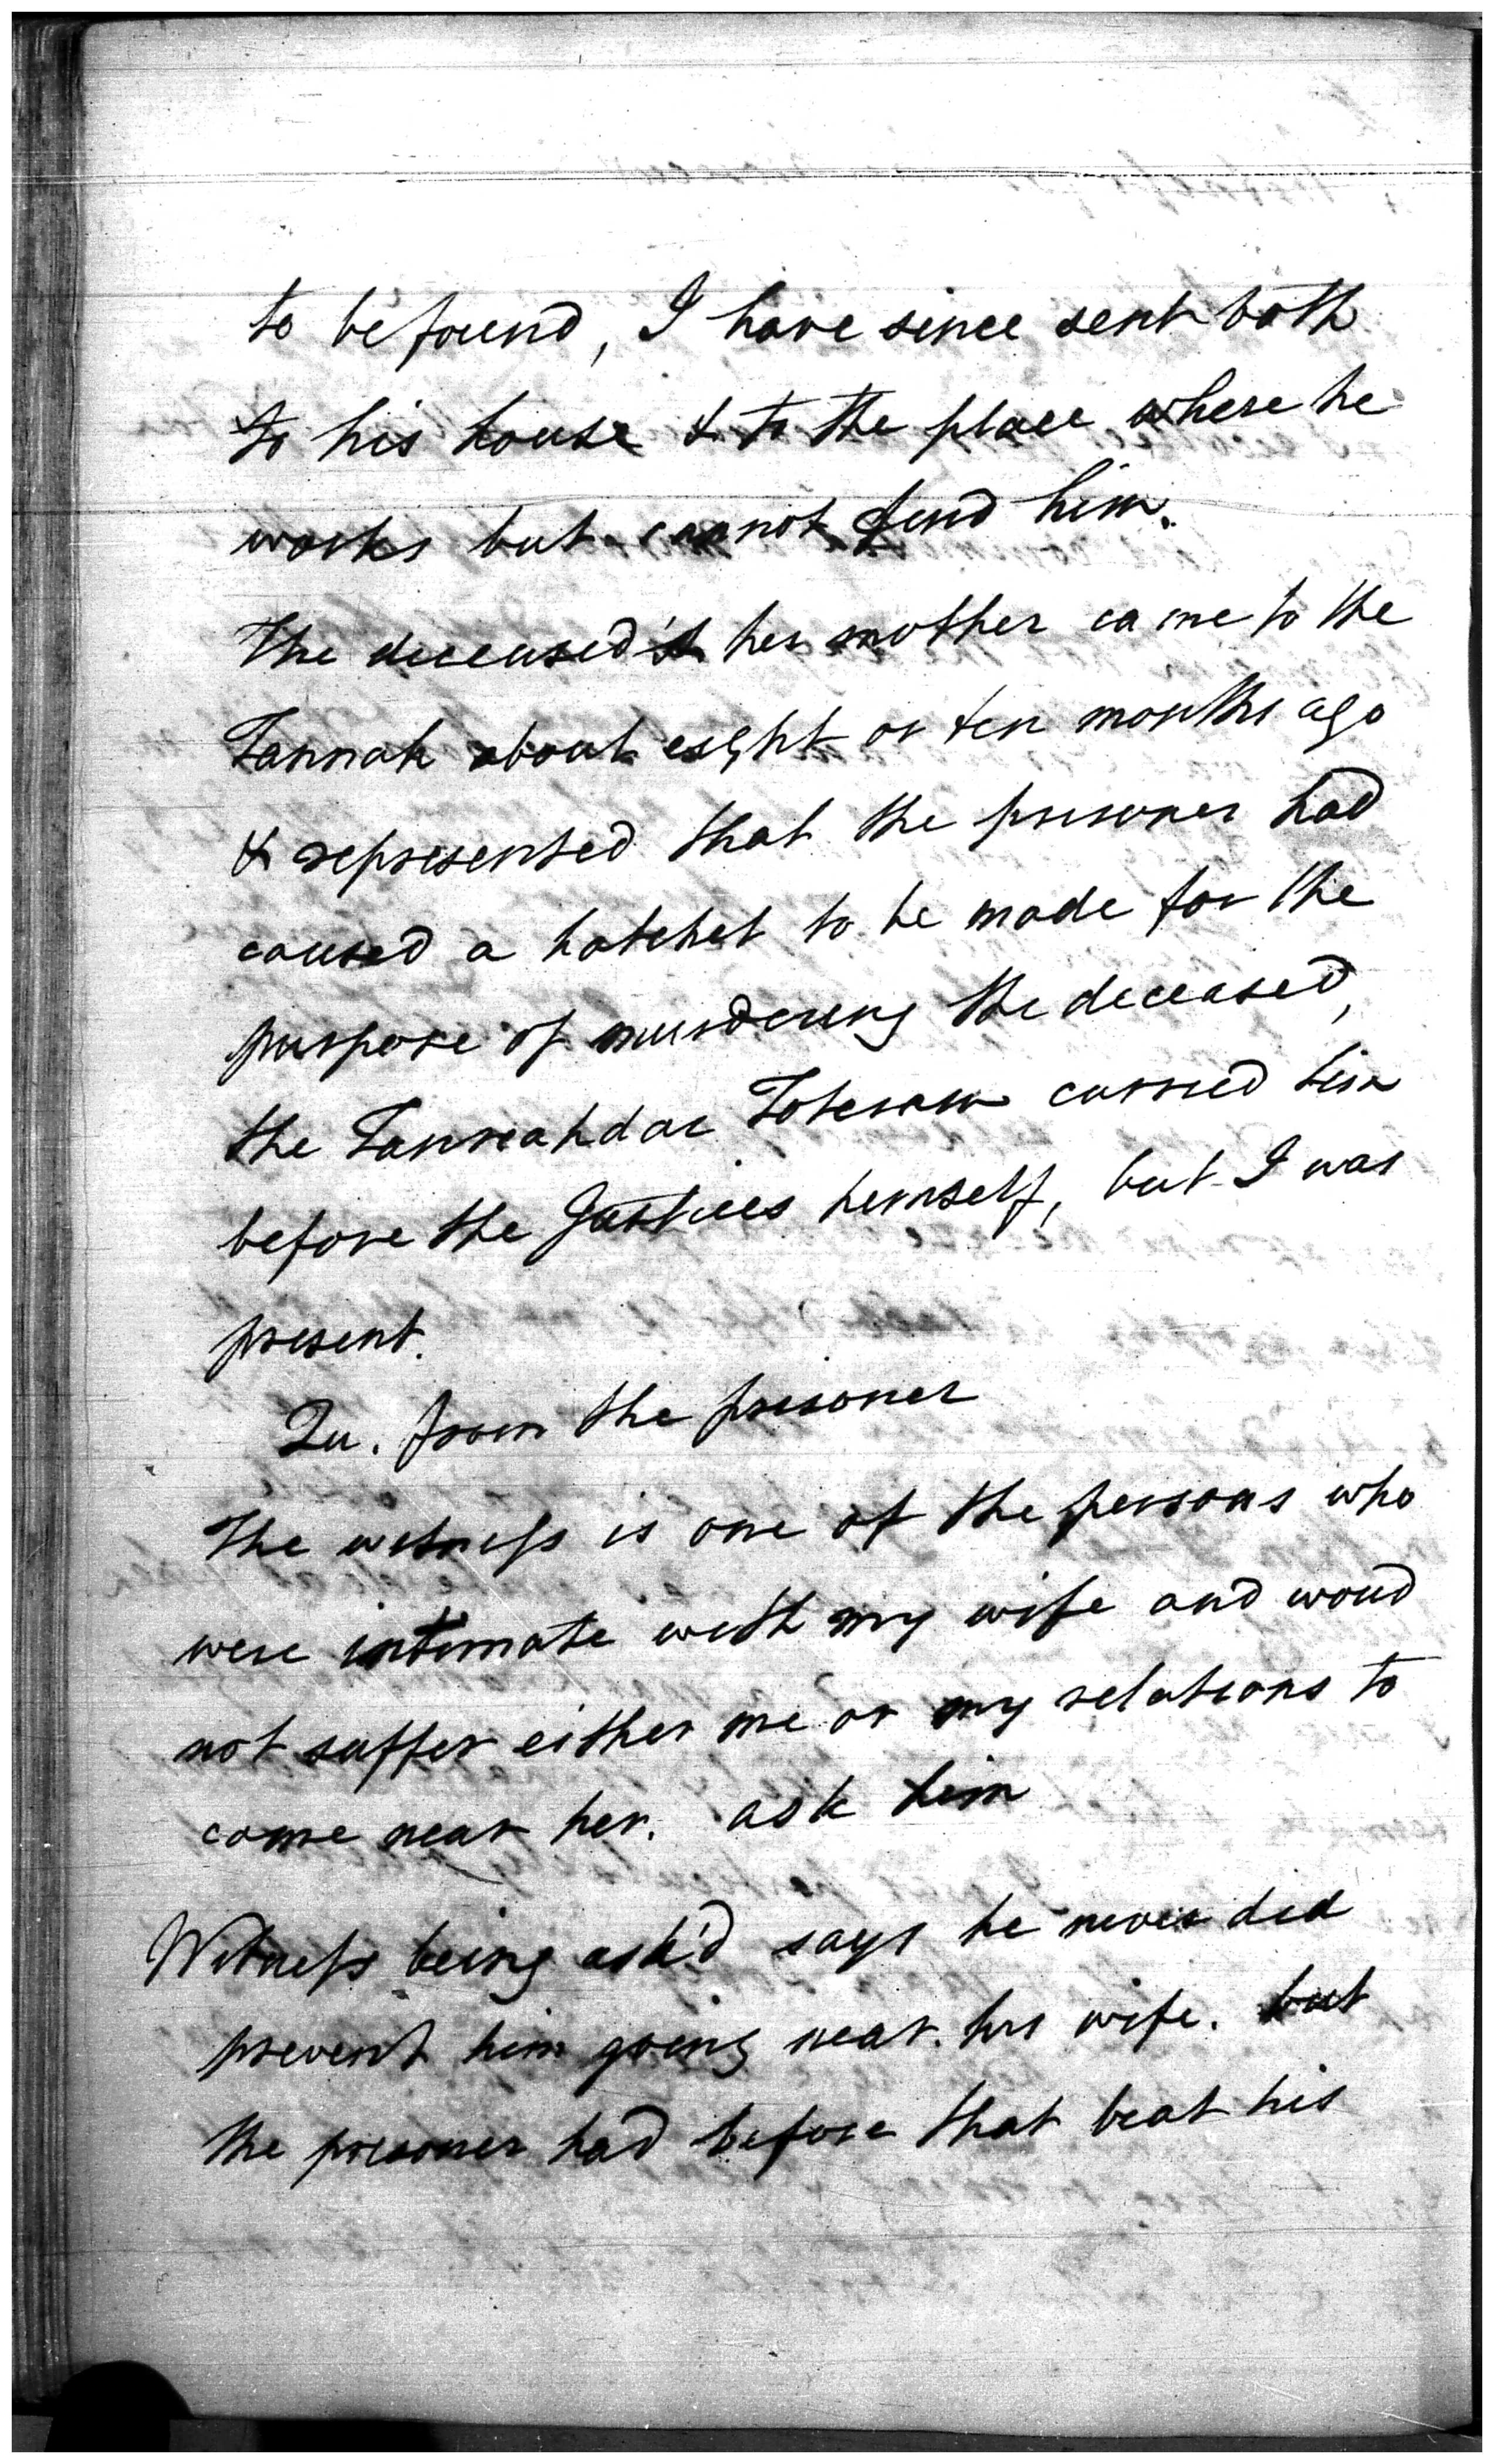 to be found, I have since sent both
to his house & to the place where he
works but cannot find him.
The deceased & her mother came to the
Tannah about eight or ten months ago
& represented that the prisoner had
caused a hatchet to be made for the
purpose of murdering the deceased,
the Tannahdar carried him
before the Justices himself, but I was
present.
Qu. from the prisoner
The witness is one of the persons who
were intimate with my wife and woud
not suffer either me or my relations to
come near her. ask him
Witness being ask'd says he never did
prevent him going near his wife. but
the prisoner had before that beat his